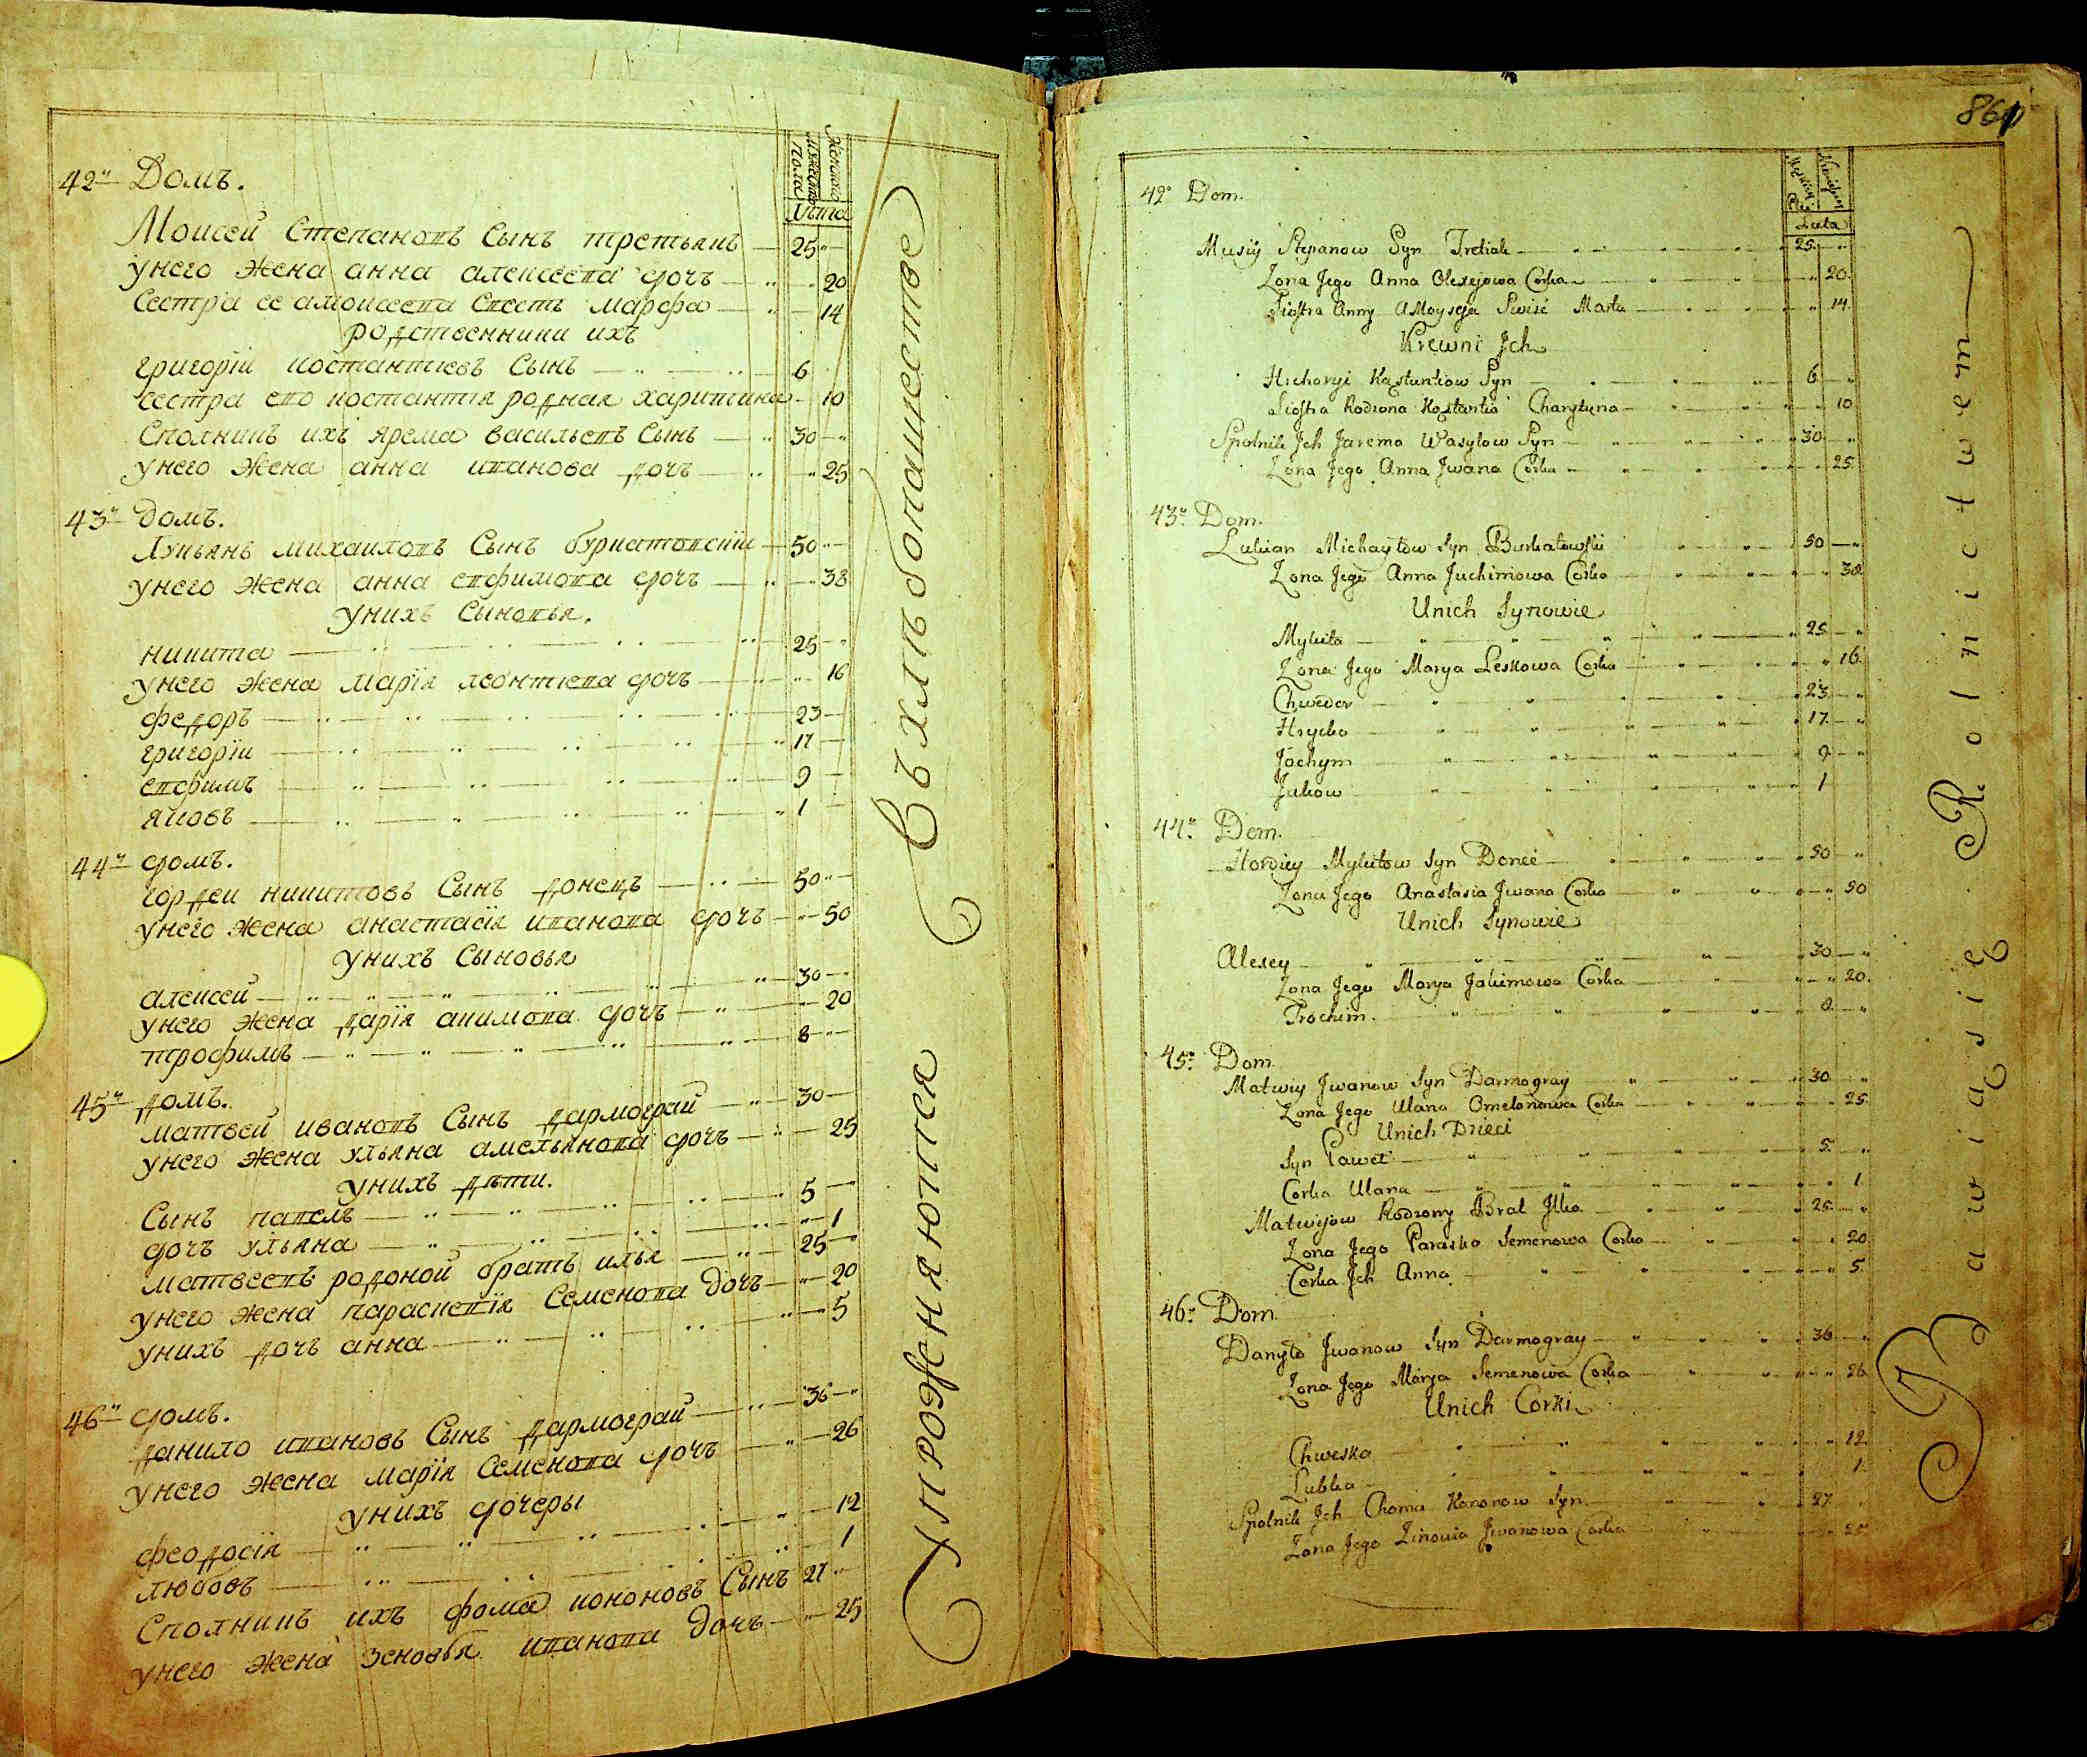 мужеска
пола
Женска
Лѣта
42й Домъ.
Моисей Степановъ Сынъ третьякъ 25
унего жена анна алексеева дочъ 20
Сестра ее амоисеева Свесть марфа 14
родственники ихъ
григорій костантиевъ Сынъ 6
сестра его костантія родная харитина 10
Сполникъ ихъ ярема васильевъ Сынъ 30
унего жена анна иванова дочъ 25
43й домъ.
Лукьянъ михаиловъ Сынъ буркатовскій 50
унего жена анна ефимова дочъ 38
унихъ Сыновья.
никита 25
унего жена марія леонтиева дочъ 16
федоръ 23
григорій 17
ефимъ 9
яковъ 1
44й домъ.
гордей никитовъ Сынъ донецъ 50
унего жена анастасія иванова дочъ 50
унихъ Сыновья
алексей 30
унего жена дарія акимова дочъ 20
трофимъ 8
45й домъ.
матвей ивановъ Сынъ дармограй 30
унего жена ульяна амельянова дочъ 25
унихъ дѣти.
Сынъ павелъ 5
дочъ ульяна 1
матвеевъ родоной братъ илья 25
унего жена параскевія Семенова дочъ 20
унихъ дочъ анна 5
46й домъ.
данило ивановъ Сынъ дармограй 36
унего жена марія Семенова дочъ 26
унихъ дочеры
феодосія 12
любовъ 1
Сполникъ ихъ фома кононовъ Сынъ 27
унего жена зеновья иванова дочъ 25
Упроженяются Въхлѣбопашестве
861
Lata
42º Dom.
Musiy Stepanow Syn Tretiak 25
Zona Jego Anna Olexejowa Corka 20
Siostra Anny a Moyseja Swisć Marta 14
Krewni Jch
Hrehoryi Kastantiow Syn 6
Siostra Rodzona Kostantia Charytyna 10
Spolnik Jch Jarema Wasylow Syn 30
Zona Jego Anna Jwana Corka 25
43º Dom.
Lukian Michayłow Syn Burkatowski 50
Zona Jego Anna Juchimowa Corka 38
Unich Synowie
Mykita 25
Zona Jego Marya Leskowa Corka 16
Chwedor 23
Hrycko 17
Jochym 9
Jakow 1
44º Dom.
Hordiey Mykitow Syn Doneć 50
Zona Jego Anastasia Jwana Corka 50
Unich Synowie
Alexey 30
Zona Jego Marya Jakimowa Corka 20
Trochim 8
45º Dom
Matwiy Jwanow Syn Darmogray 30
Zona Jego Ulana Omelanowa Corka 25
Unich Dzieci
Syn Paweł 5
Corka Ulana 1
Matwijow Rodzony Brat Jlko 25
Zona Jego Paraska Semenowa Corka 20
Corka Jch Anna 5
46º Dom.
Danyło Jwanow Syn Darmogray 36
Zona Jego Marya Semenowa Corka 26
Unich Corki
Chweska 12
Lubka 1
Spolnik Jch Choma Kononow Syn 27
Zona Jego Zinowia Jwanowa Corka 25
Bawią się Rolnictwem